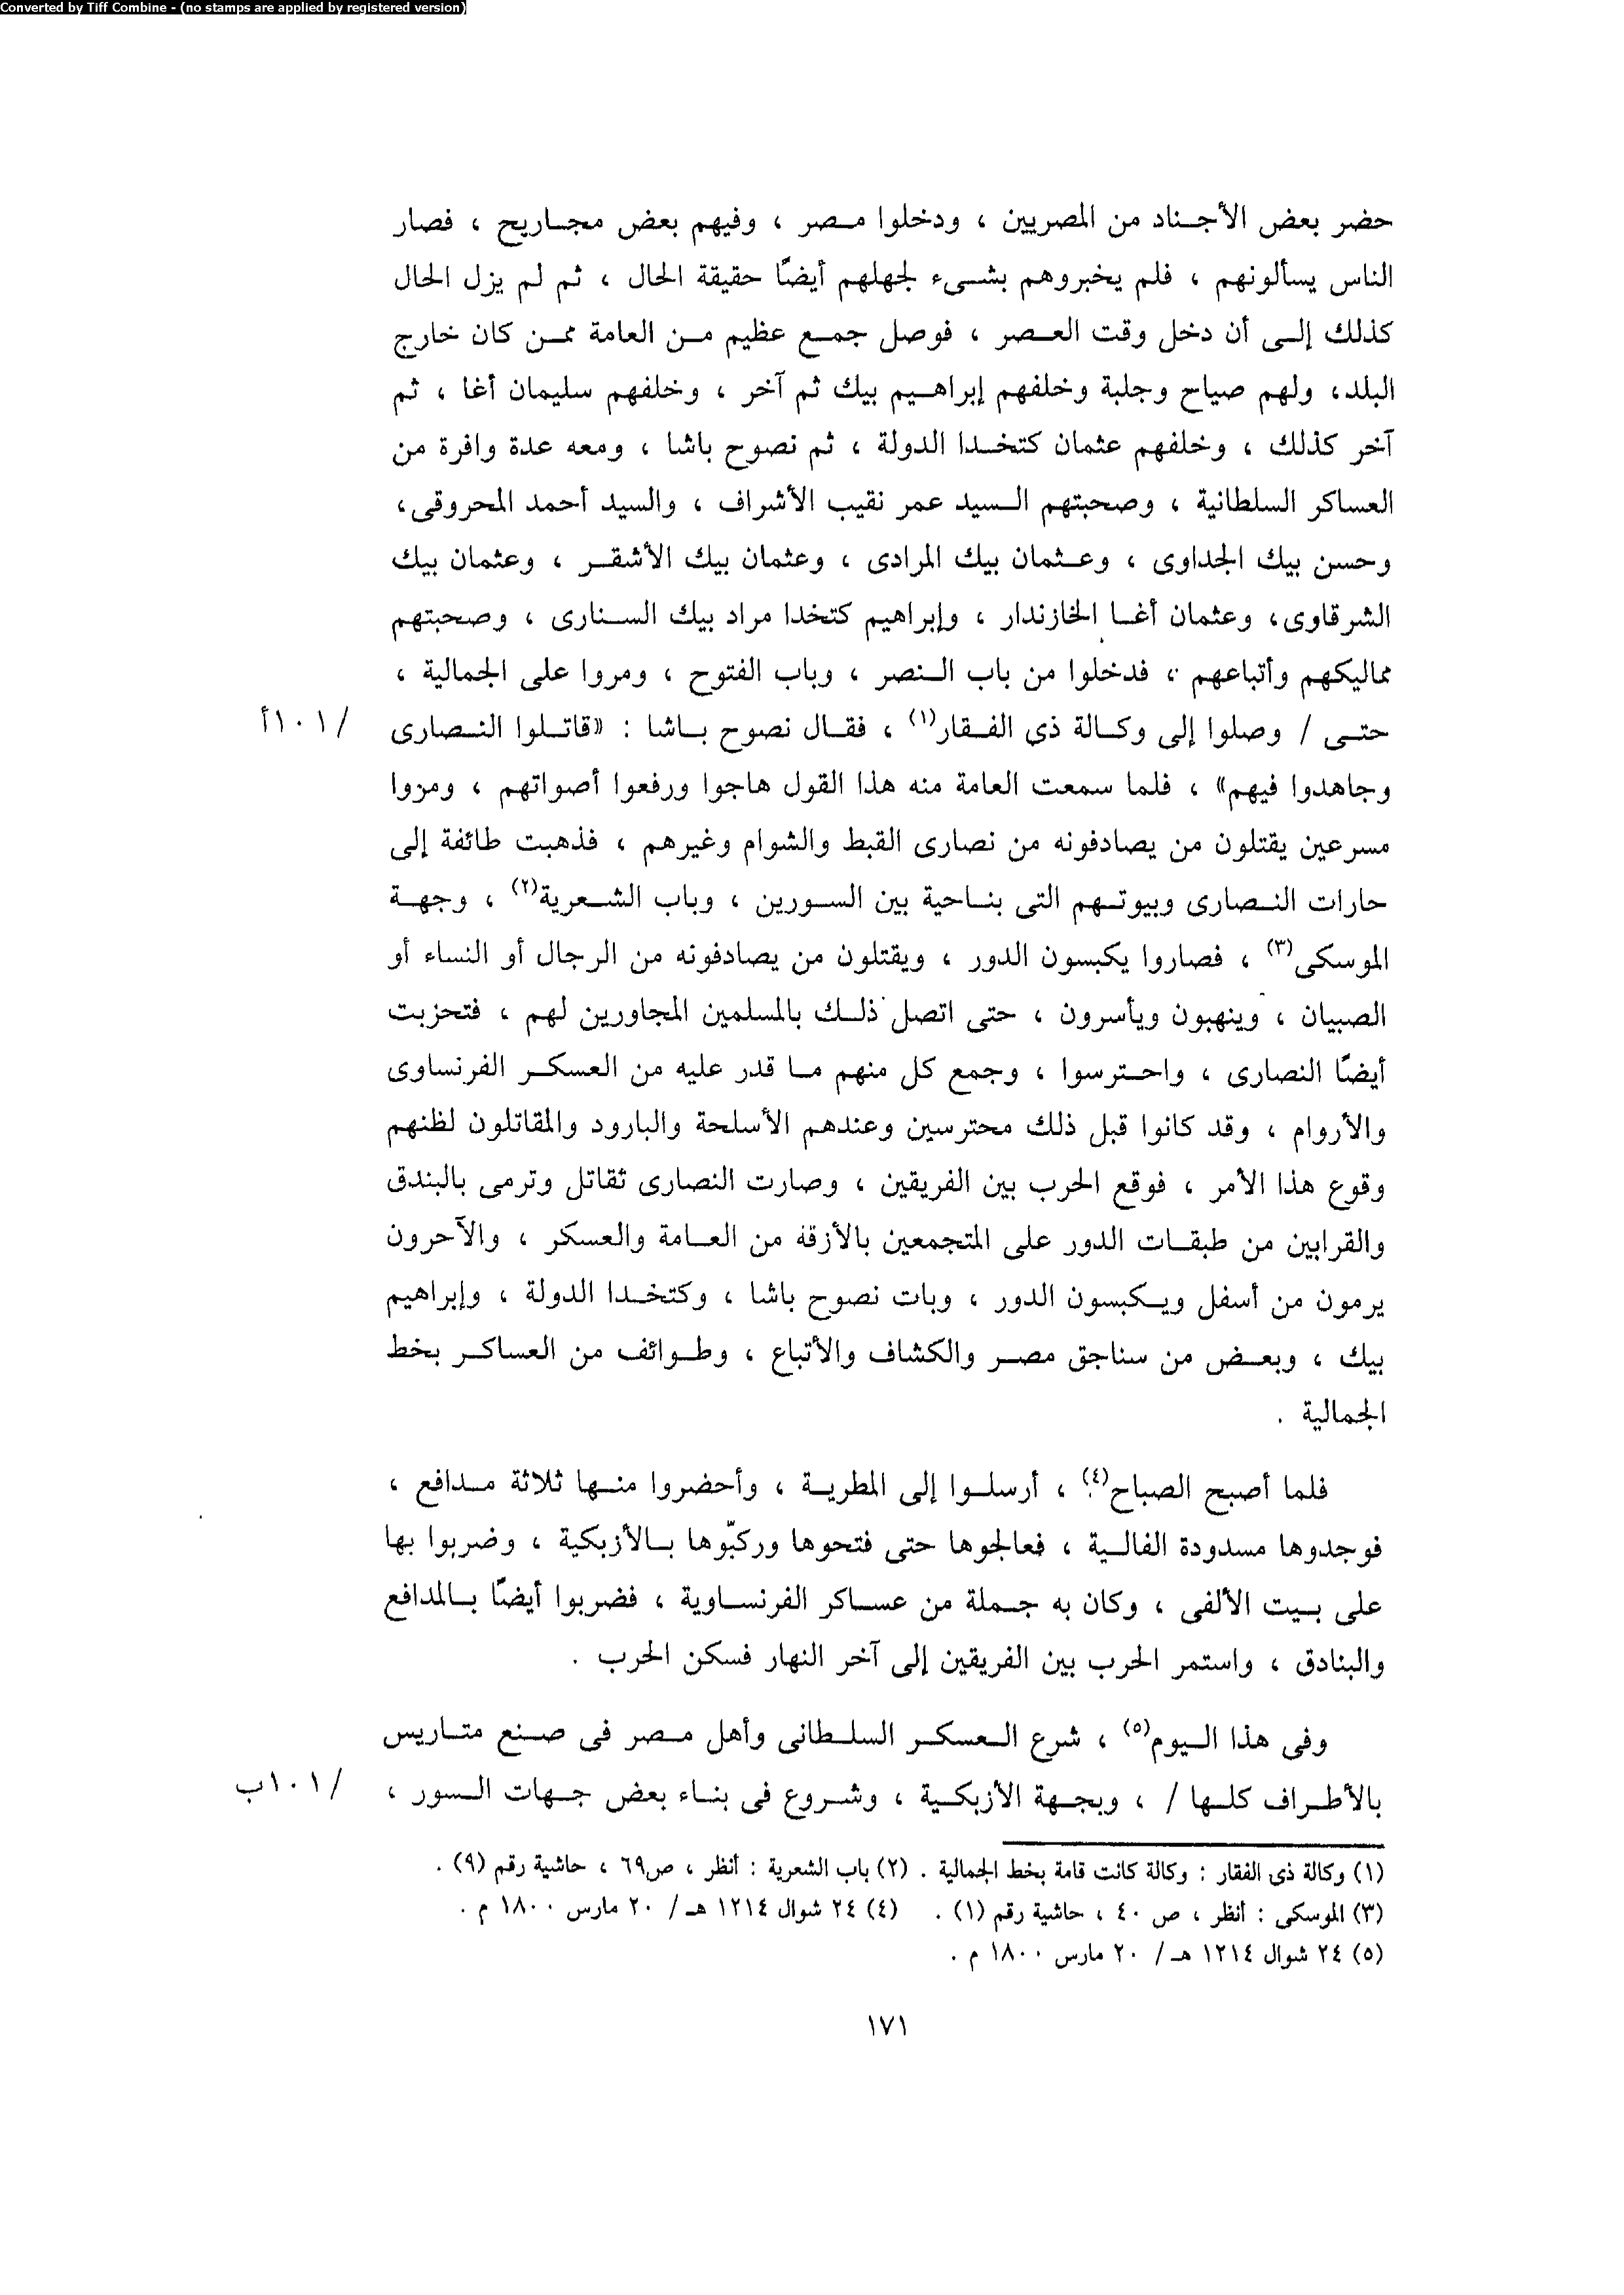 Converted by Tiff Combine - (no stamps are applied by registered version)
حضر بعض الأجناد من المصريين ، ودخلوا مصر ، وفيهم بعض مجاريح ، فصار
الناس يسألونهم ، فلم يخبروهم بشىء لجهلهم أيضًا حقيقة الحال ، ثم لم يزل الحال
كذلك إلى أن دخل وقت العصر ، فوصل جمع عظيم من العامة ممن كان خارج
البلد، ولهم صياح وجلبة وخلفهم إبراهيم بيك ثم آخر ، وخلفهم سليمان أغا ، ثم
آخر كذلك ، وخلفهم عثمان كتخدا الدولة ، ثم نصوح باشا ، ومعه عدة وافرة من
العساكر السلطانية ، وصحبتهم السيد عمر نقيب الأشراف ، والسيد أحمد المحروقى،
وحسن بيك الجداوى ، وعثمان بيك المرادى ، وعثمان بيك الأشقر ، وعثمان بيك
الشرقاوى، وعثمان أغا الخازندار ، وإبراهيم كتخدا مراد بيك السنارى ، وصحبتهم
مماليكهم وأتباعهم ، فدخلوا من باب النصر ، وباب الفتوح ، ومروا على الجمالية ،
حتى / وصلوا إلى وكالة ذي الفقار(١) ، فقال نصوح باشا : «قاتلوا النصارى /١٠١أ
وجاهدوا فيهم» ، فلما سمعت العامة منه هذا القول هاجوا ورفعوا أصواتهم ، ومروا
مسرعين يقتلون من يصادفونه من نصارى القبط والشوام وغيرهم ، فذهبت طائفة إلى
حارات النصارى وبيوتهم التى بناحية بين السورين ، وباب الشعرية(٢) ، وجهة
الموسكى(٣) ، فصاروا يكبسون الدور ، ويقتلون من يصادفونه من الرجال أو النساء أو
الصبيان ، وينهبون ويأسرون ، حتى اتصل ذلك بالمسلمين المجاورين لهم ، فتحزبت
أيضًا النصارى ، واحترسوا ، وجمع كل منهم ما قدر عليه من العسكر الفرنساوى
والأروام ، وقد كانوا قبل ذلك محترسين وعندهم الأسلحة والبارود والمقاتلون لظنهم
وقوع هذا الأمر ، فوقع الحرب بين الفريقين ، وصارت النصارى تقاتل وترمى بالبندق
والقرابين من طبقات الدور على المتجمعين بالأزقة من العامة والعسكر ، والآحرون
يرمون من أسفل ويكبسون الدور ، وبات نصوح باشا ، وكتخدا الدولة ، وإبراهيم
بيك ، وبعض من سناجق مصر والكشاف والأتباع ، وطوائف من العساكر بخط
الجمالية .
فلما أصبح الصباح(٤) ، أرسلوا إلى المطرية ، وأحضروا منها ثلاثة مدافع ،
فوجدوها مسدودة الفالية ، فعالجوها حتى فتحوها وركبّوها بالأزبكية ، وضربوا بها
على بيت الألفى ، وكان به جملة من عساكر الفرنساوية ، فضربوا أيضًا بالمدافع
والبنادق ، واستمر الحرب بين الفريقين إلى آخر النهار فسكن الحرب .
وفى هذا اليوم(٥) ، شرع العسكر السلطانى وأهل مصر فى صنع متاريس
بالأطراف كلها / ، وبجهة الأزبكية ، وشروع فى بناء بعض جهات السور ، /١٠١ب
(١) وكالة ذى الفقار : وكالة كانت قامة بخط الجمالية . (٢) باب الشعرية : أنظر ، ص٦٩ ، حاشية رقم (٩) .
(٣) الموسكى : أنظر ، ص ٤٠ ، حاشية رقم (١) . (٤) ٢٤ شوال ١٢١٤ هـ / ٢٠ مارس ١٨٠٠ م .
(٥) ٢٤ شوال ١٢١٤ هـ / ٢٠ مارس ١٨٠٠ م .
١٧١